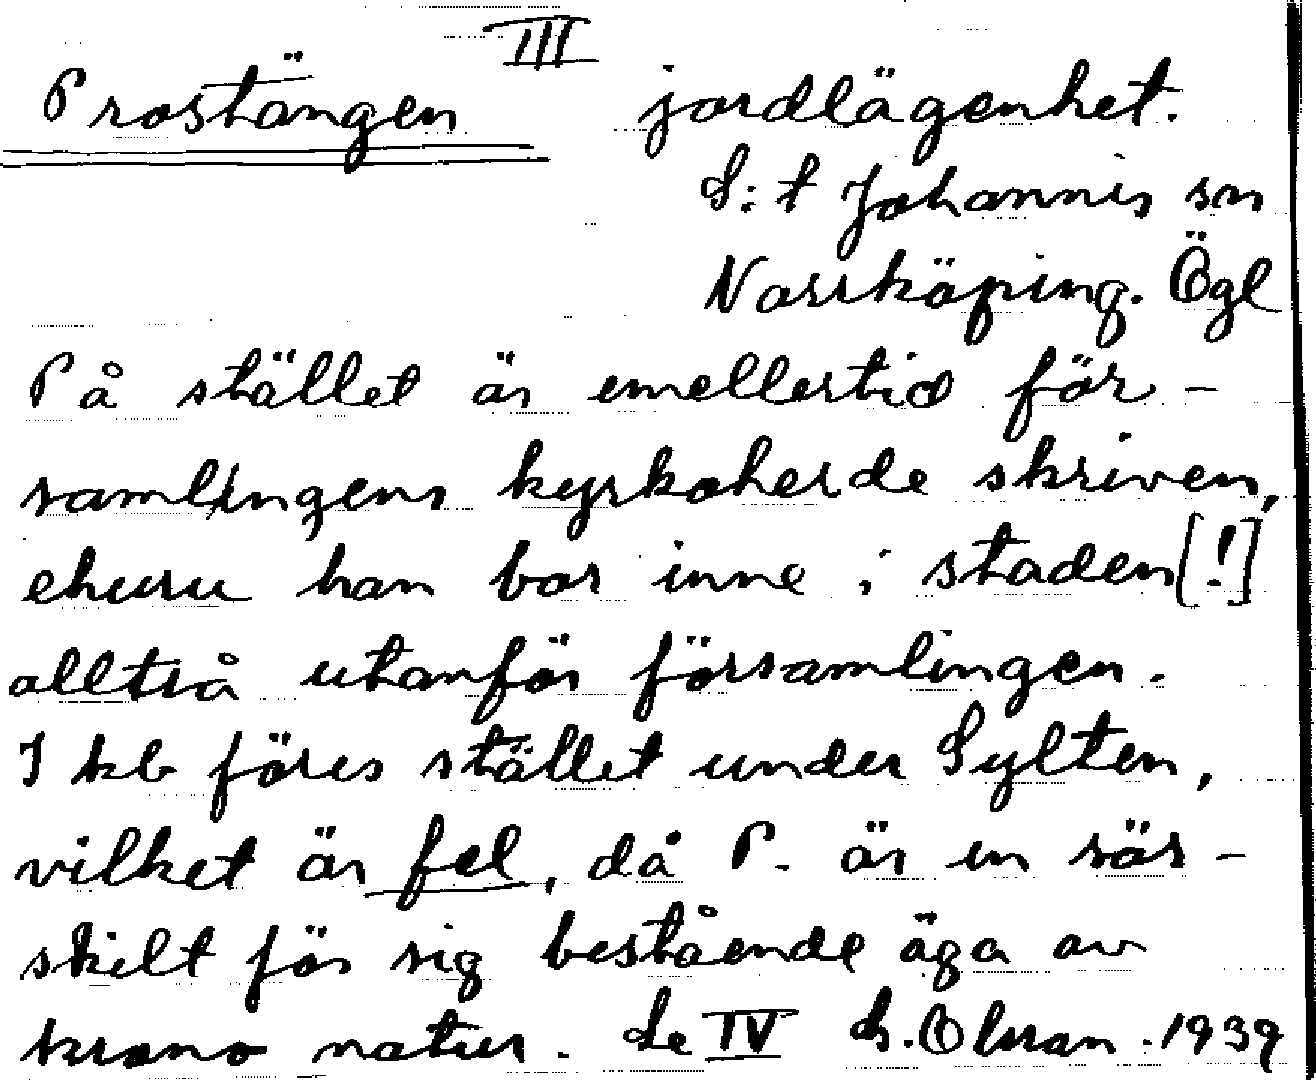 III
Prostängen jordlägenhet.
S:t Johannis sn
Norrköping. Ögl
På stället är emellertid för-
samlingens kyrkoherde skriven,
ehuru han bor inne i staden [!]
alltså utanför församlingen.
I kb föres stället under Sylten,
vilket är fel, då P. är en sär-
skilt för sig bestående äga av
krono natur. Se IV S. Olsson. 1939